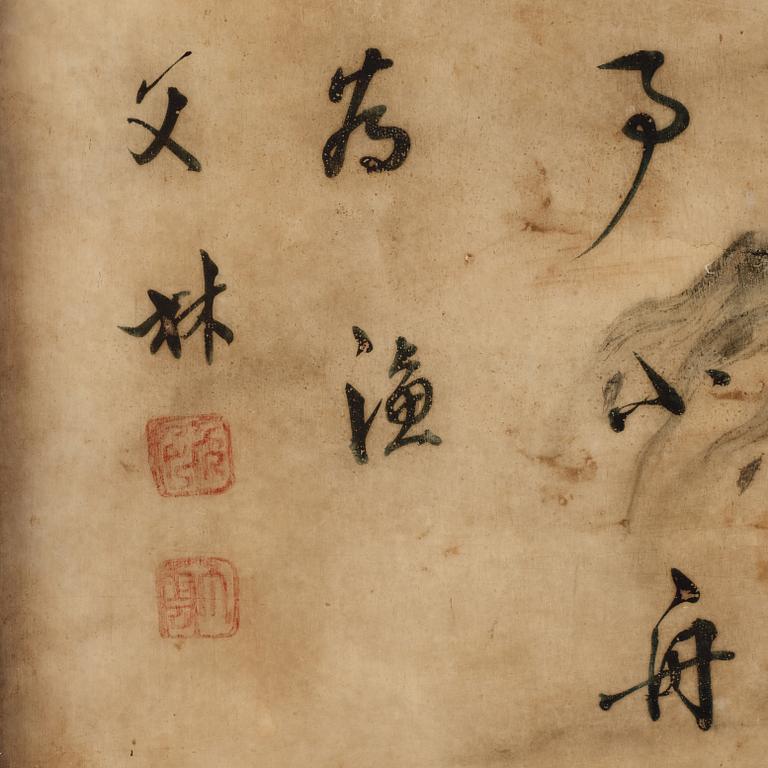 予小舟
為漁
父林